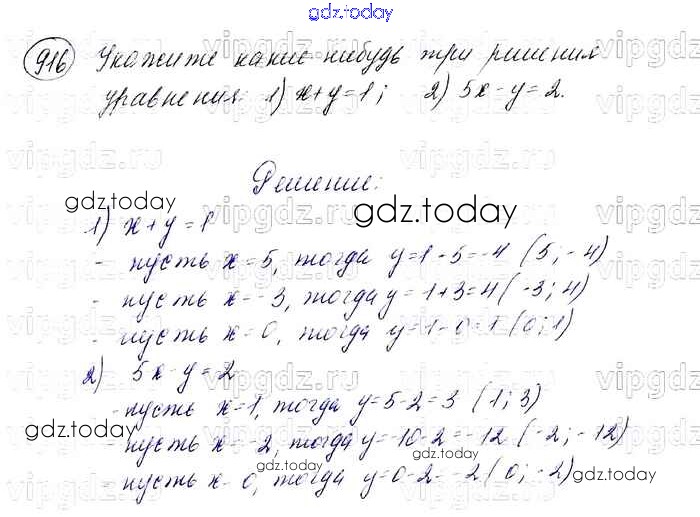 gdz.today
916 Укажите какие нибудь три решения
уравнения: 1) x+y=1; 2) 5x-y=2.
Решение:
gdz.today
gdz.today
1) x+y=1
- пусть x=5, тогда y=1-5=-4 (5;-4)
- пусть x=-3, тогда y=1+3=4 (-3;4)
- пусть x=0, тогда y=1-0=1 (0;1)
2) 5x-y=2
- пусть x=1, тогда y=5-2=3 (1;3)
gdz.today
- пусть x=-2, тогда y=-10-2=-12 (-2;-12)
gdz.today
- пусть x=0, тогда y=0-2=-2 (0;-2)
gdz.today
vipgdz.ru